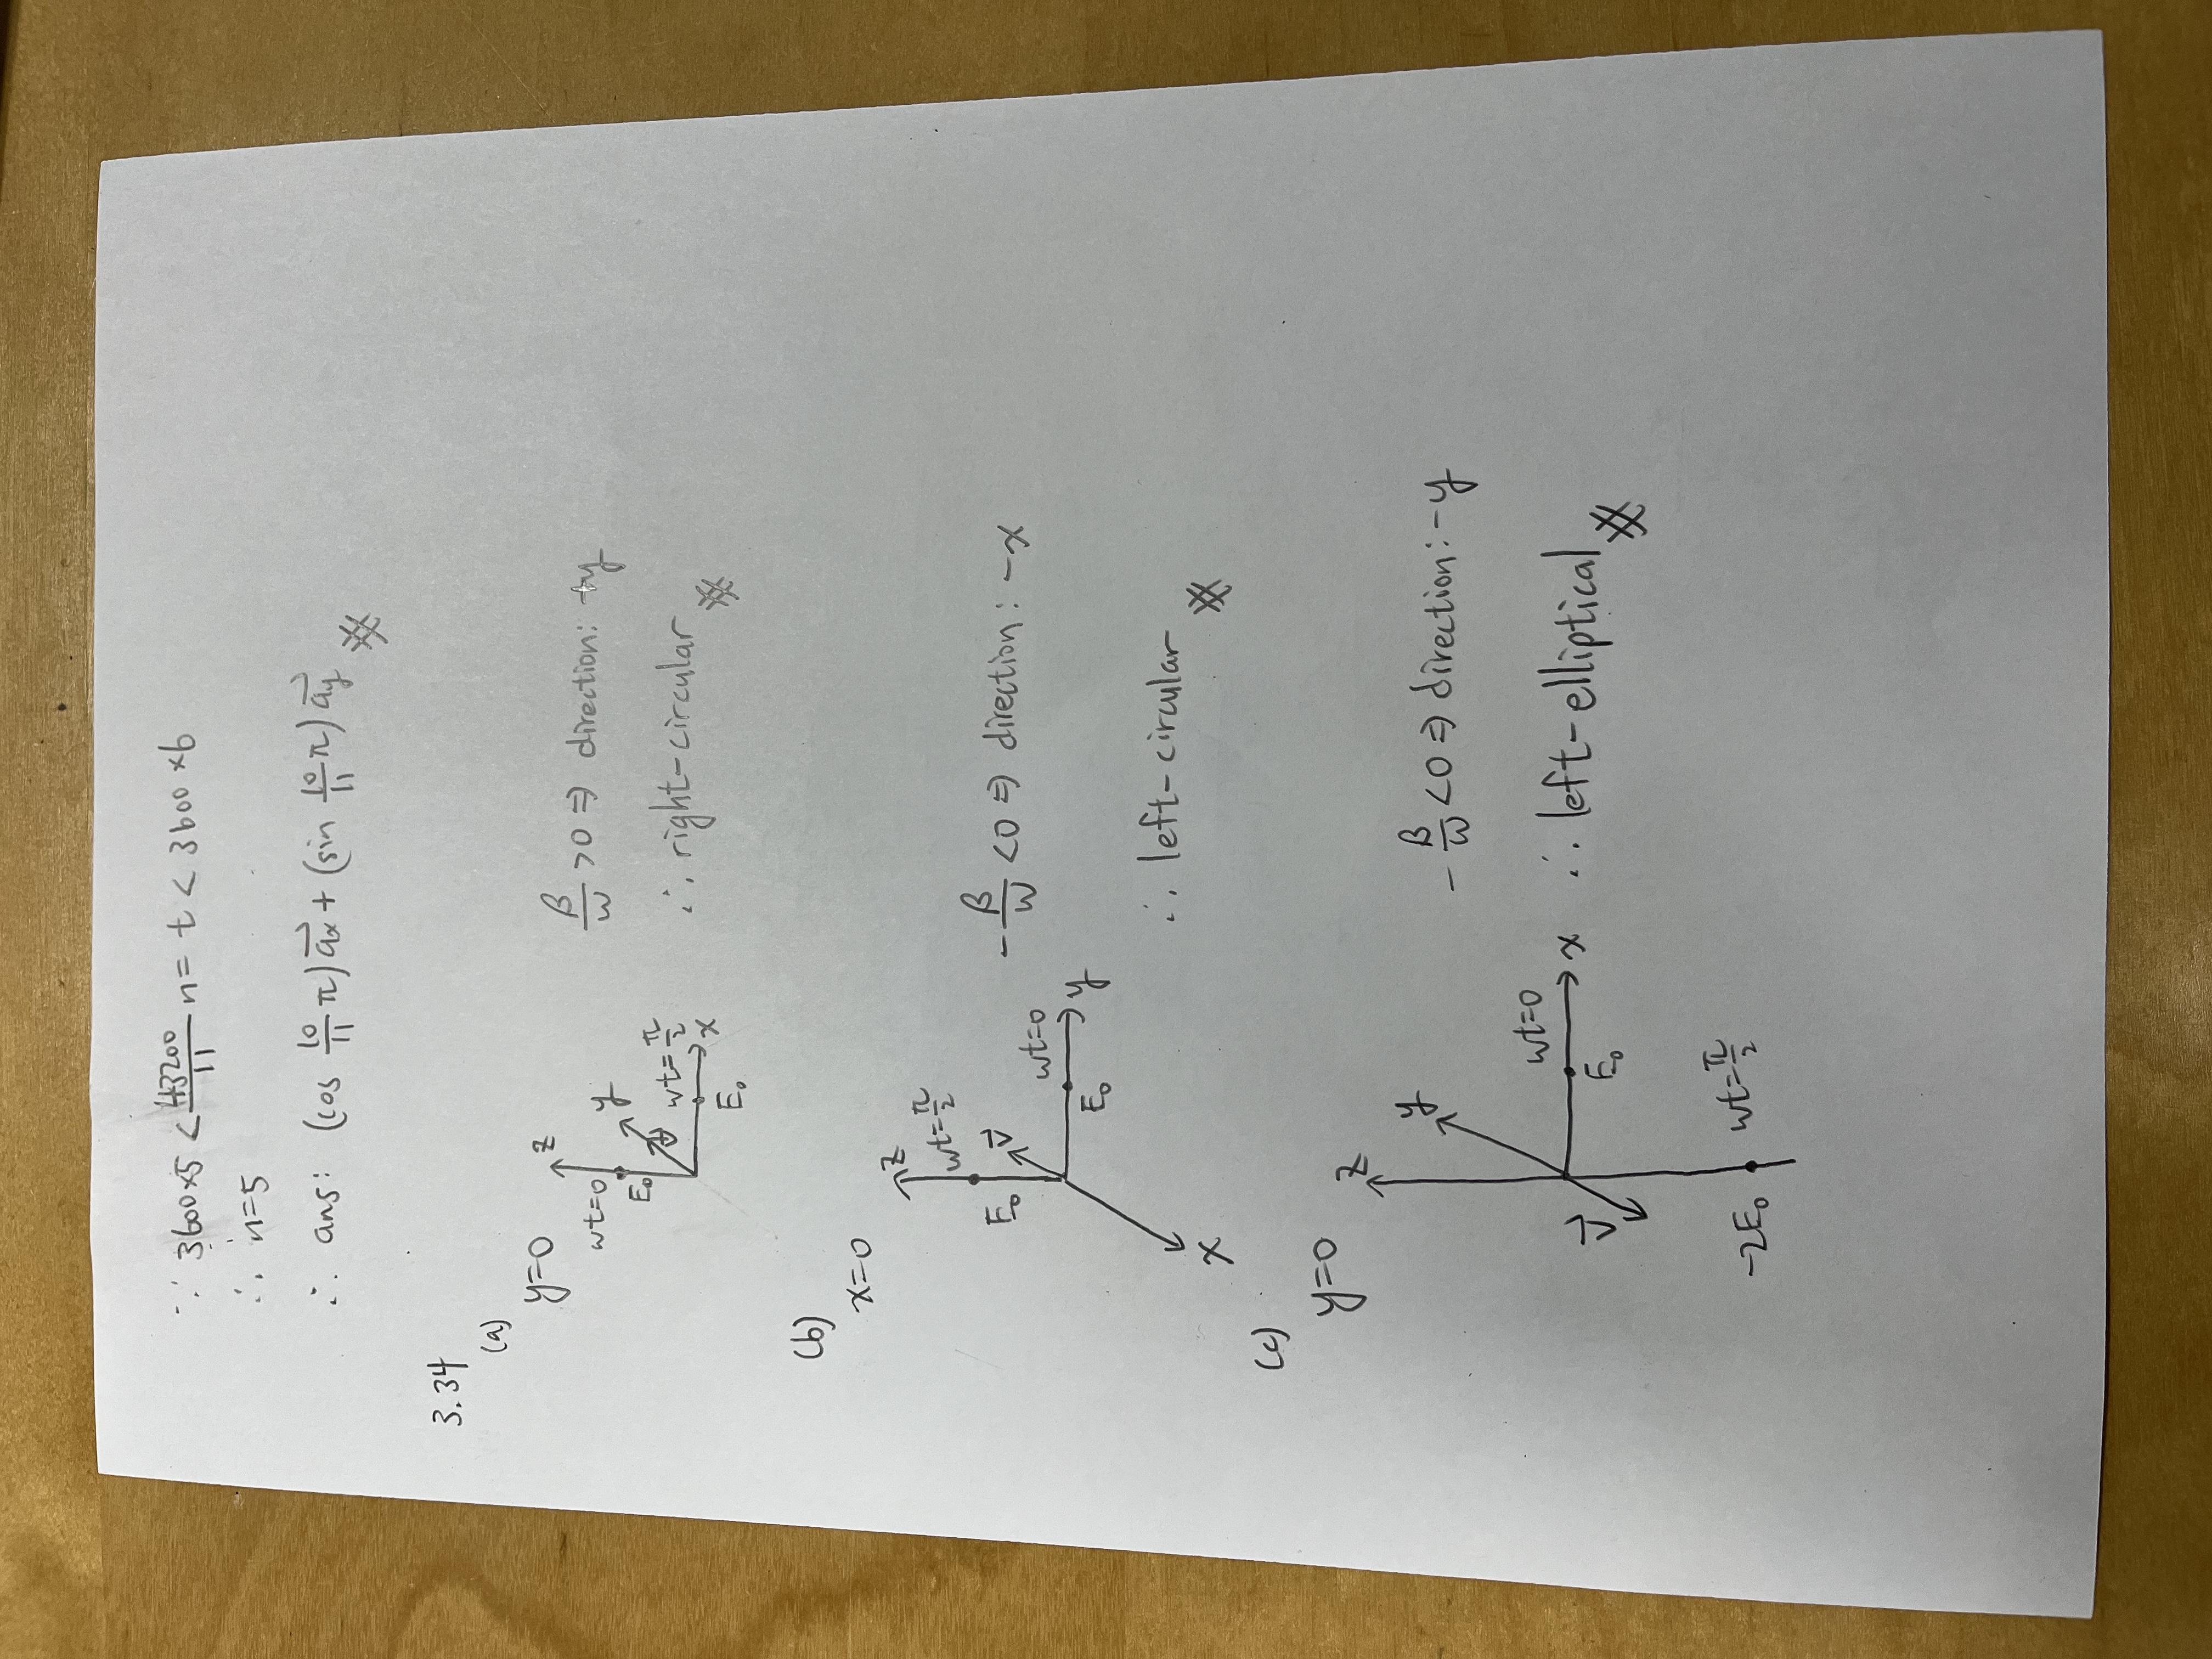 ∵ 3600×5 < 43200/11 n = t < 3600×6
∴ n=5
∴ ans: (cos 10/11 π) a⃗x + (sin 10/11 π) a⃗y
3.34
(a)
y=0
z
wt=0
y
E₀
v⃗
wt=π/2
x
E₀
β/w >0 ⇒ direction: +y
∴ right-circular
(b)
x=0
z
wt=π/2
E₀
v⃗
wt=0
y
E₀
x
-β/w <0 ⇒ direction: -x
∴ left-circular
(c)
y=0
z
y
wt=0
x
E₀
v⃗
-2E₀
wt=π/2
-β/w <0 ⇒ direction: -y
∴ left-elliptical